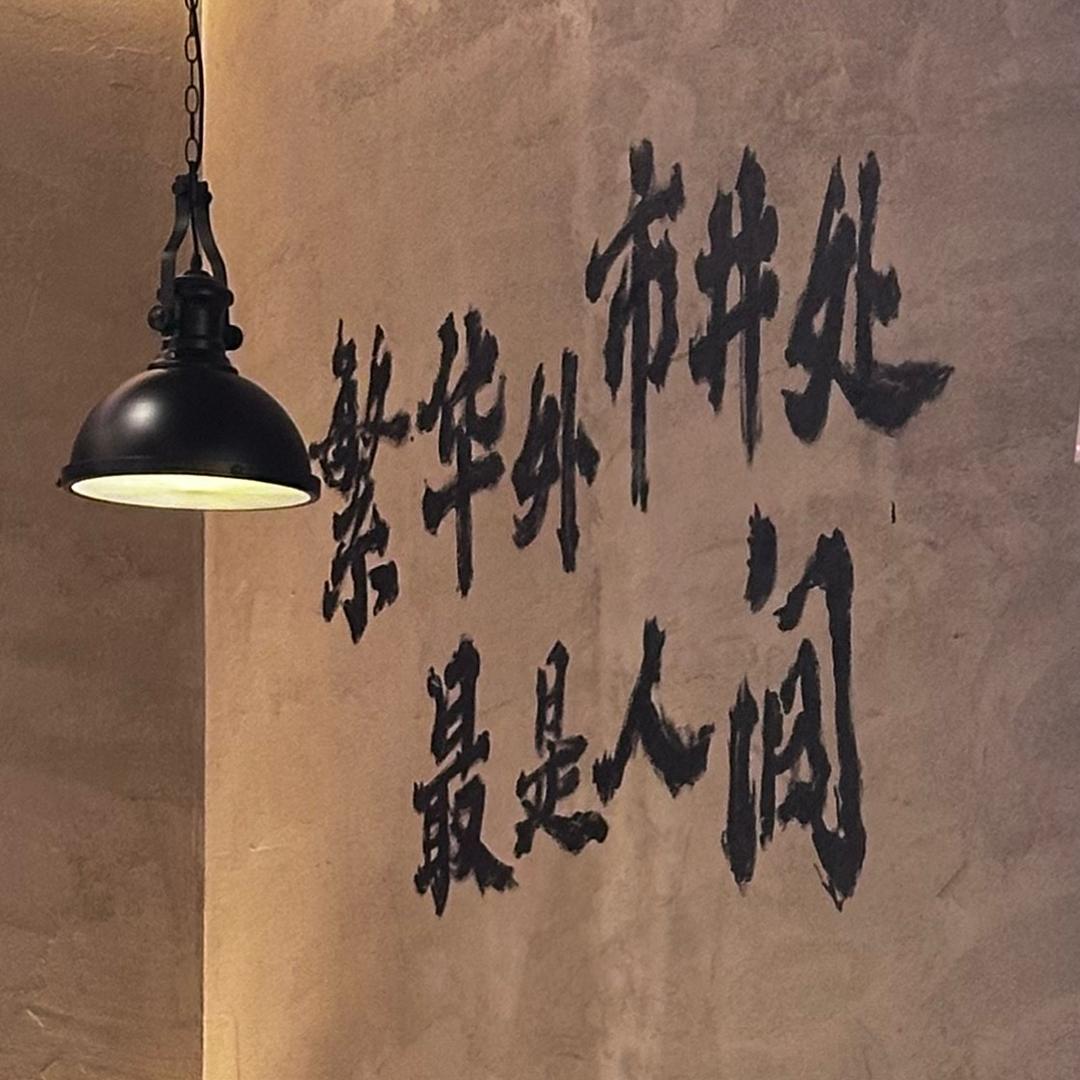 繁华外市井处
最是人间